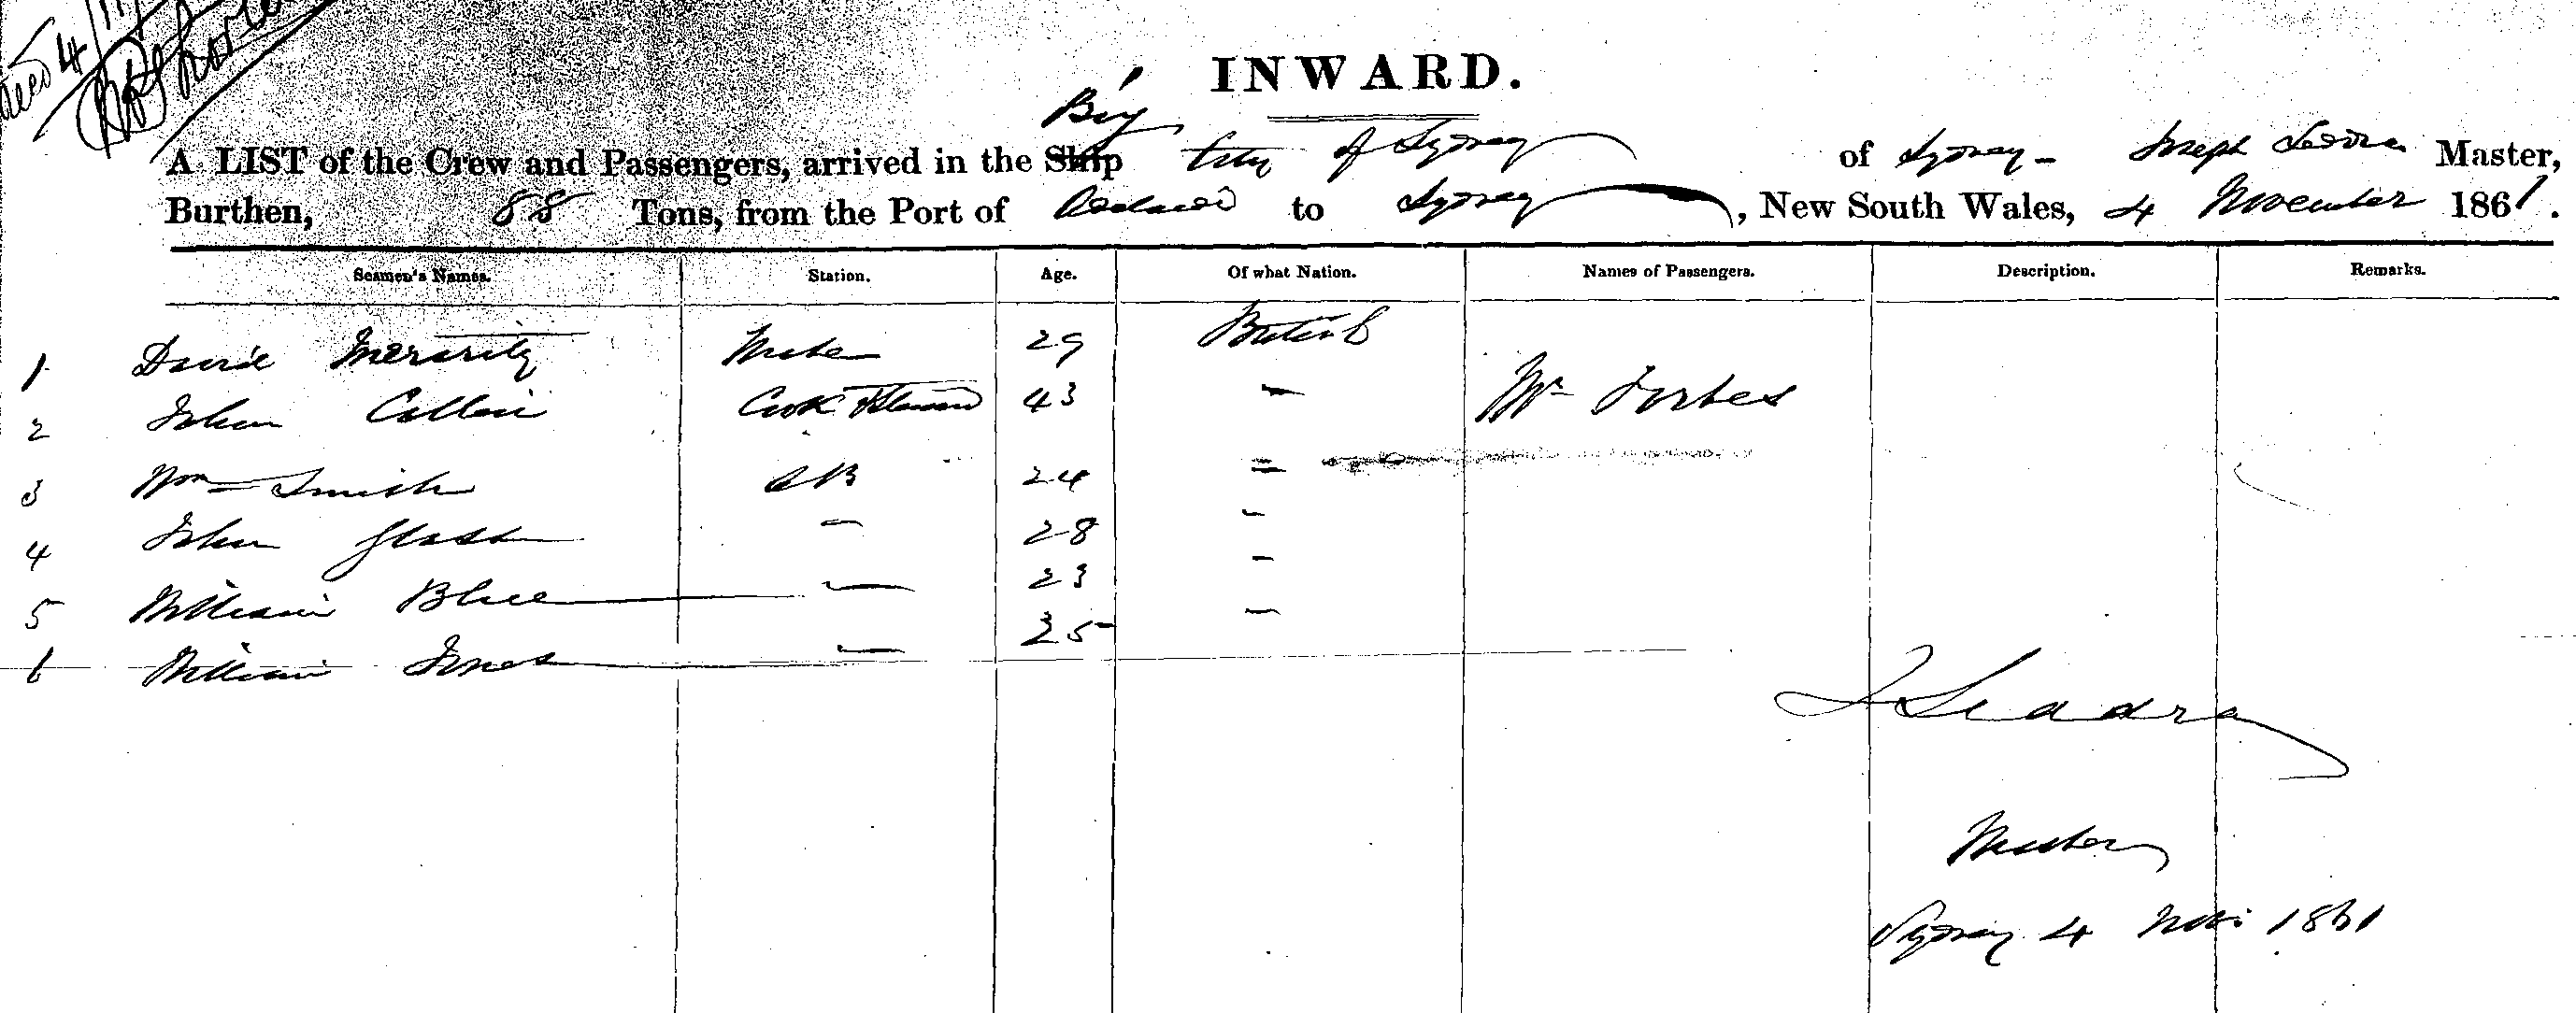 4/11/
INWARD.
Brig
A LIST of the Crew and Passengers, arrived in the Ship City of Sydney of Sydney - Joseph Master,
Burthen, 88 Tons, from the Port of to Sydney, New South Wales, 4 November 1861.
Seamen's Names. Station. Age. Of what Nation. Names of Passengers. Description. Remarks.
1 David Mate 29 British
2 John Collin Cook & Steward 43 - Mr Forbes
3 Wm Smith AB 24 =
4 John Glass - 28 -
5 William Blue - 23 -
6 William Jones - 25 -
J Seadra
Master
Sydney 4 Nov: 1861